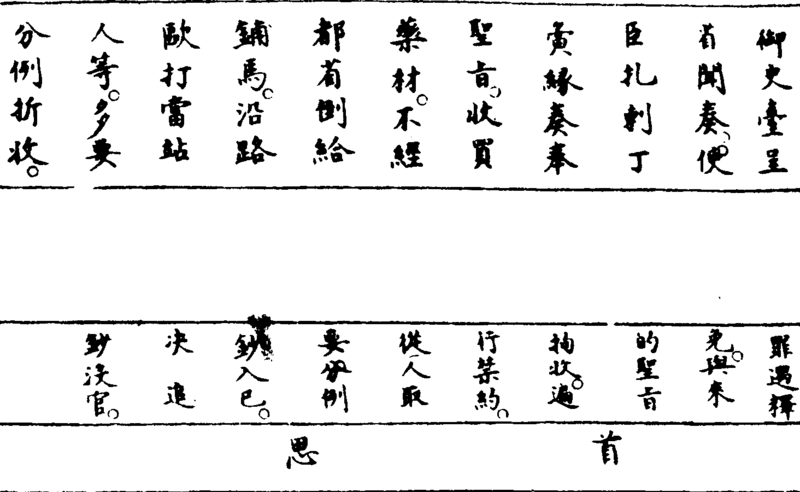 御史臺呈
省聞奏。便
臣扎剌丁
夤緣奏奉
聖旨。收買
藥材。不經
都省倒給
鋪馬。沿路
歐打當站
人等。多要
分例折收。
罪遇釋
免。與來
的聖旨
拘收。遍
行禁約。
從人取
要分例
鈔入己。
決追
鈔沒官。
首
思